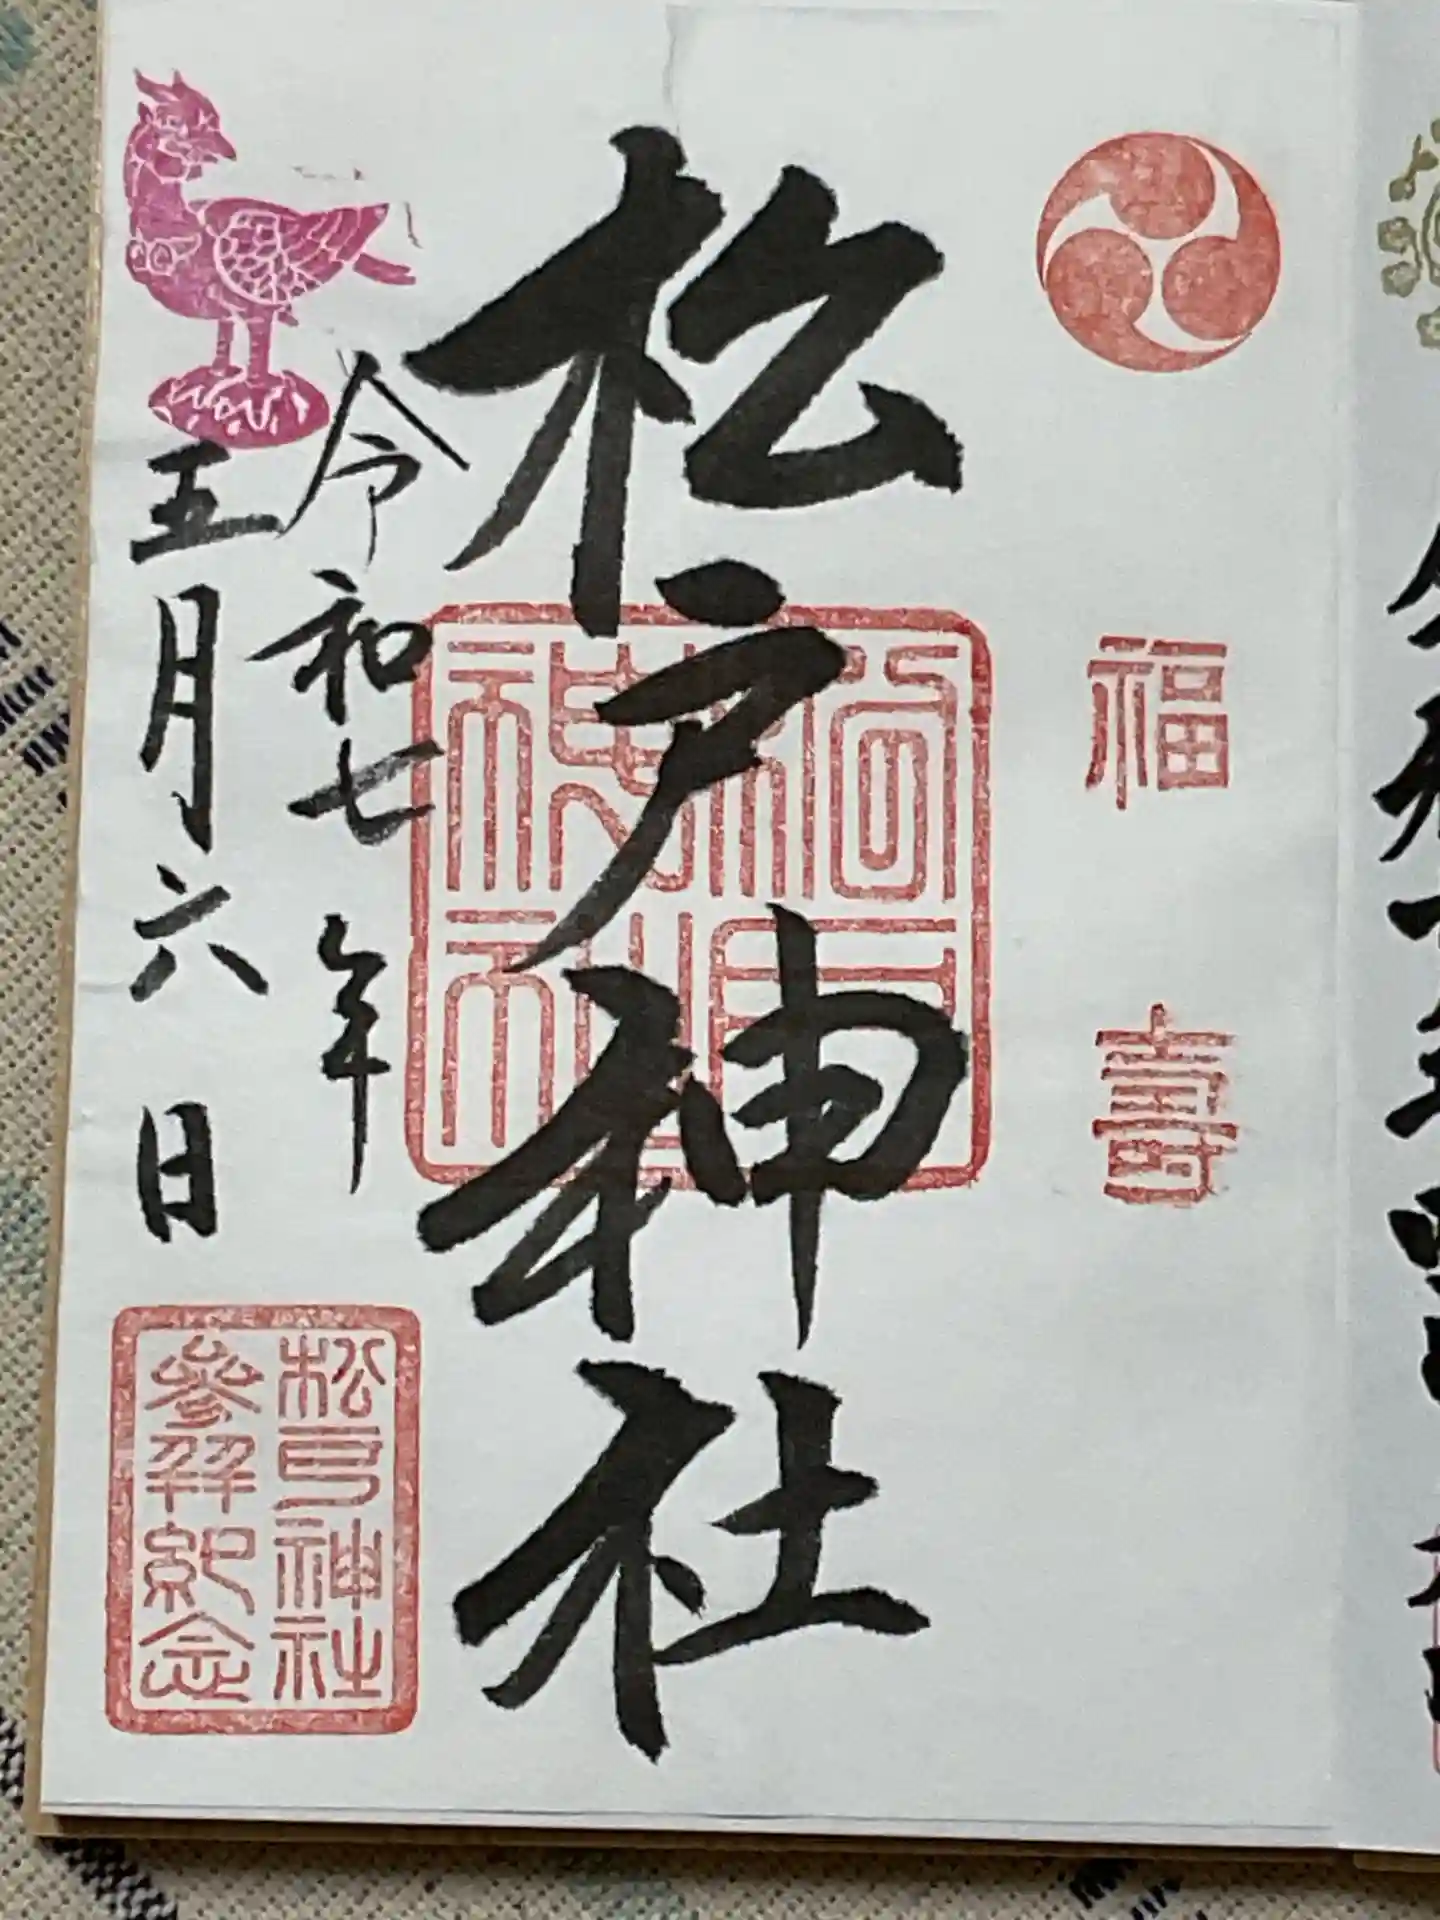 福寿
松戸神社
松戸神社
令和七年
五月六日
松戸神社
参拝紀念